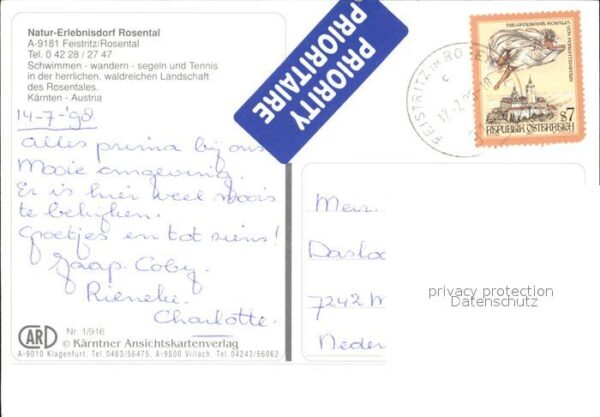 Natur-Erlebnisdorf Rosental
A-9181 Feistritz/Rosental
Tel. 0 42 28 / 27 47
Schwimmen - wandern - segeln und Tennis
in der herrlichen, waldreichen Landschaft
des Rosentales.
Kärnten - Austria
14-7-'98
Alles prima bij ons
Mooie omgeving.
Er is hier veel moois
te bekijken.
Groetjes en tot ziens!
Jaap-Coby.
Rieneke.
Charlotte.
Nr. 1/916
CARD
© Kärntner Ansichtskartenverlag
A-9010 Klagenfurt, Tel. 0463/56475, A-9500 Villach, Tel. 04242/56062
PRIORITY
PRIORITAIRE
FEISTRITZ IM ROSEN
c
VON
S7
REPUBLIK ÖSTERREICH
7242
privacy protection
Datenschutz